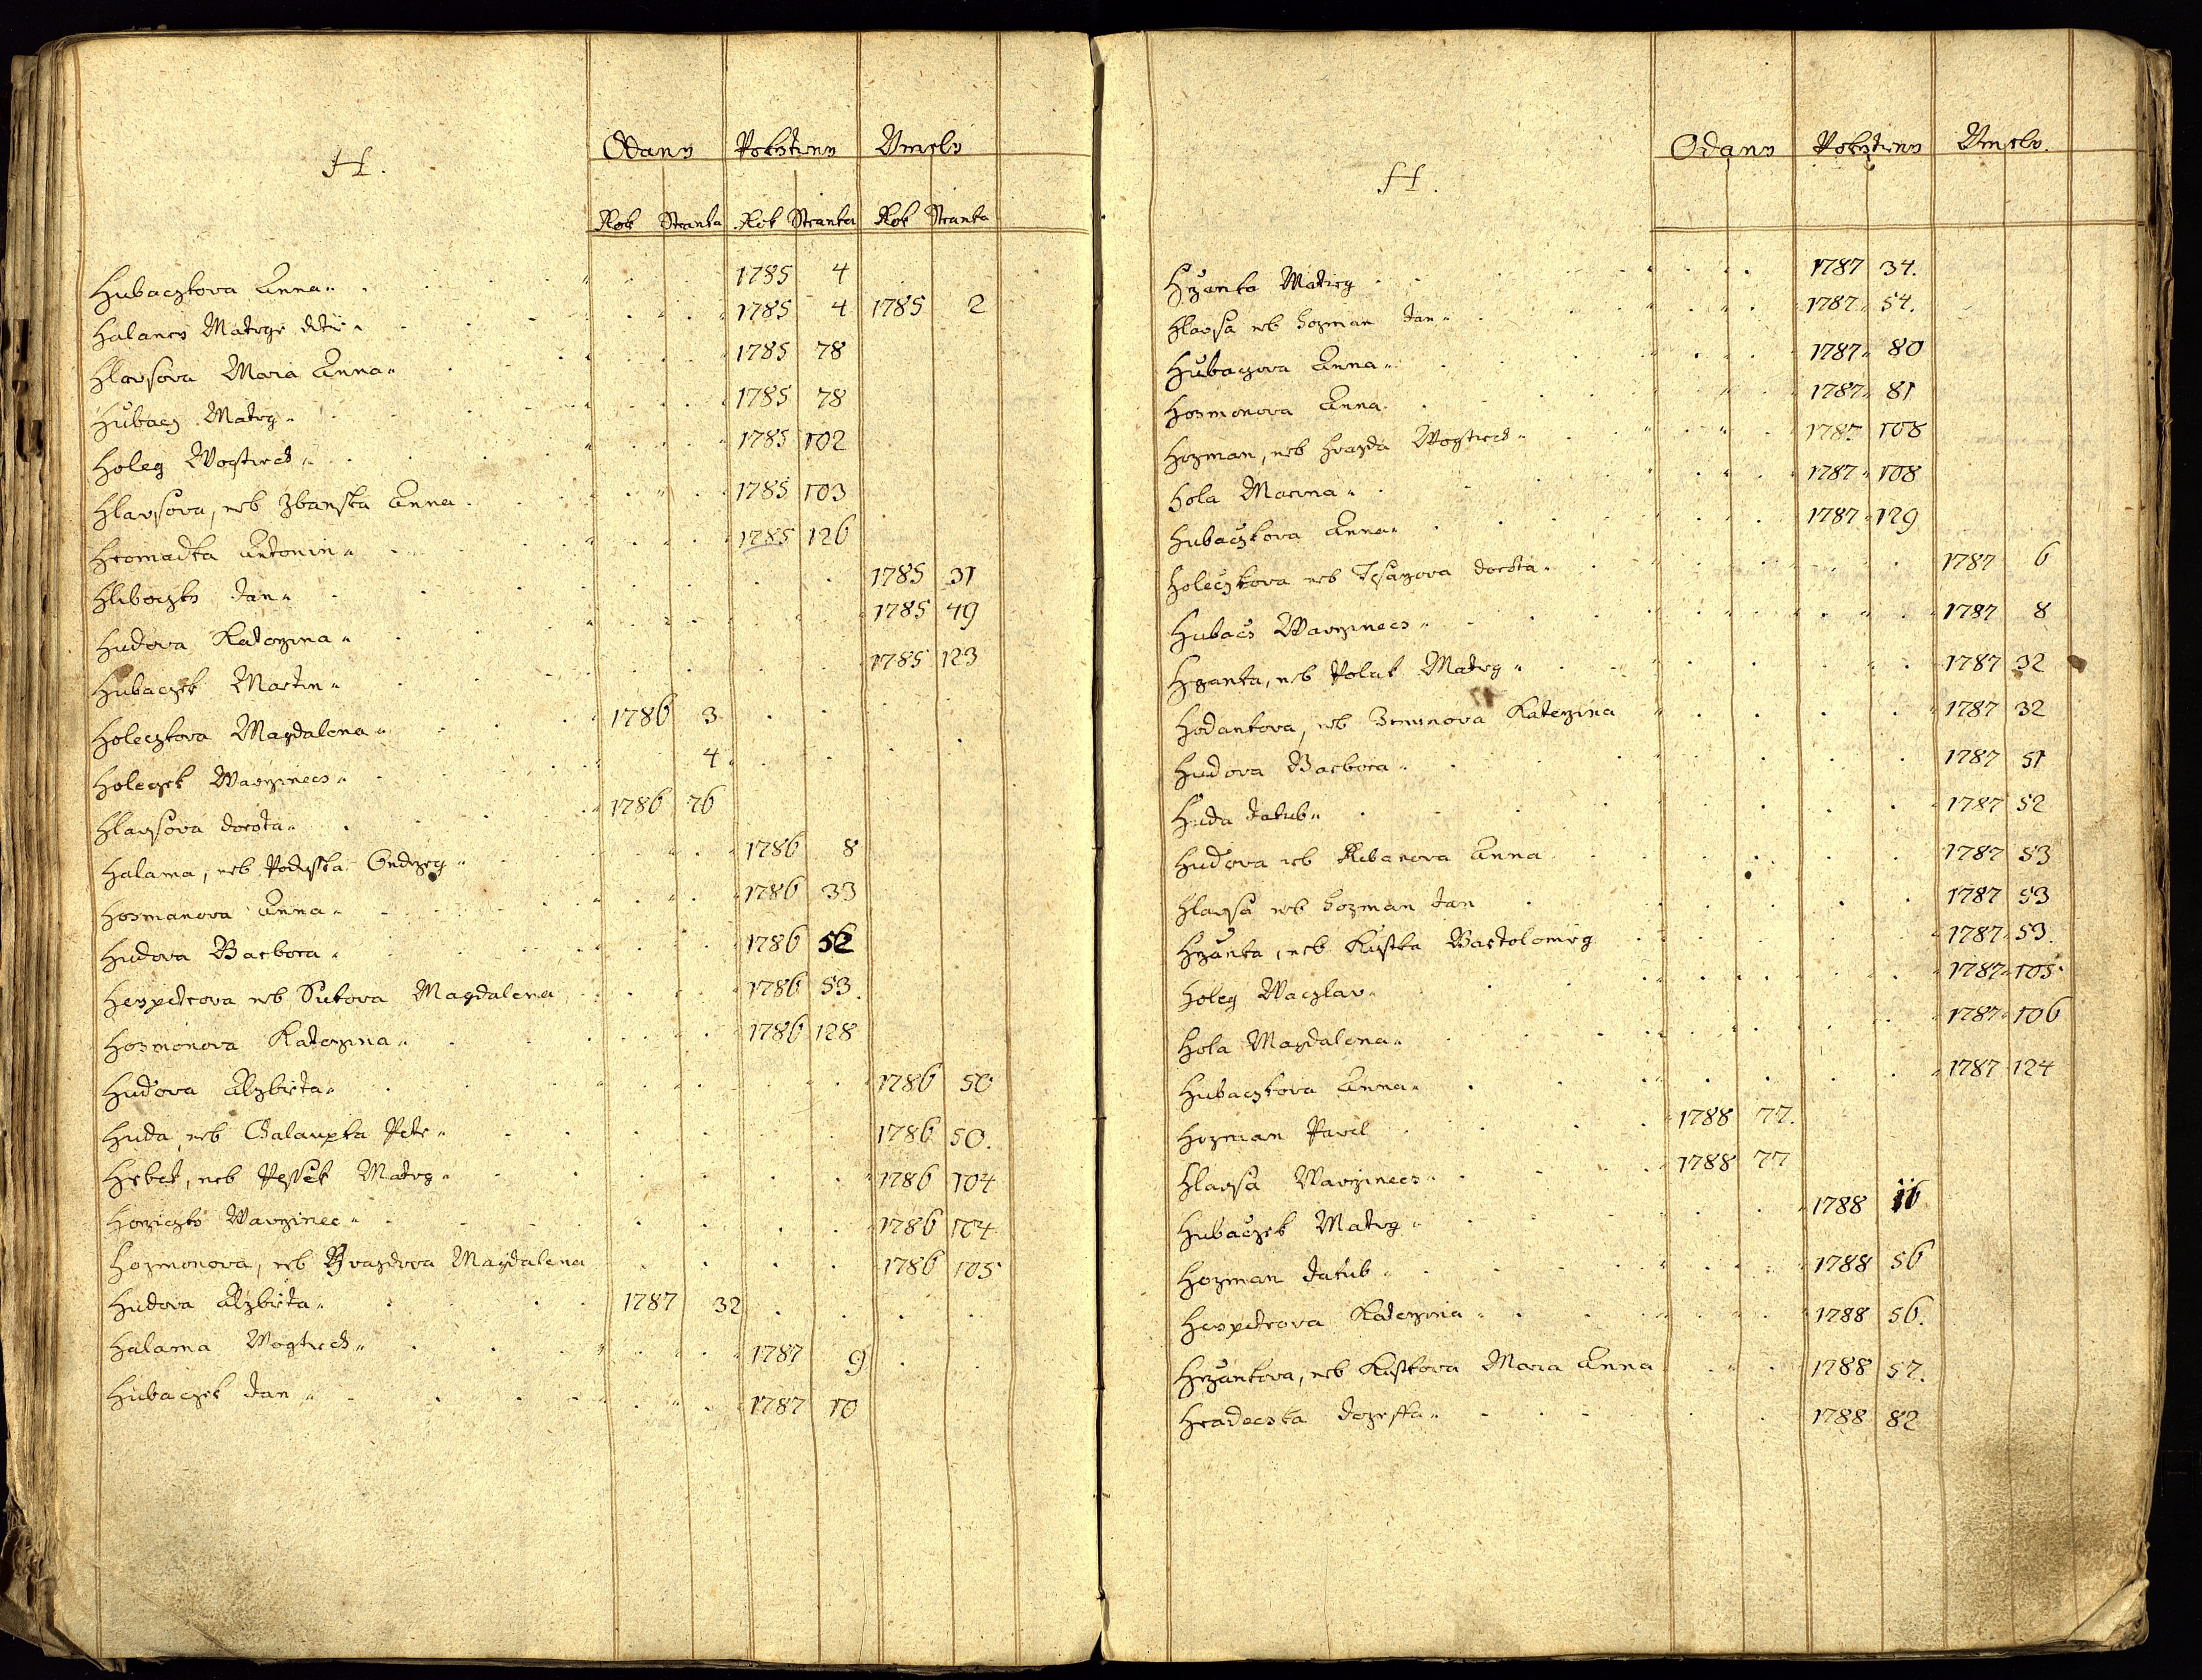 H.
Oddany Pokrztieny Vmrely
Rok Stranka Rok Stranka Rok Stranka
Hubaczkova Anna 1785 4
Halancy Matege dite 1785 4 1785 2
Hlavsova Maria Anna 1785 78
Hubacz Mateg 1785 78
Holeg Wogtiech 1785 102
Hlavsova, neb Zbanska Anna 1785 103
Hromadka Antonin 1785 126
Hliboczky Jan 1785 31
Hudova Katerzina 1785 49
Hubaczek Martin 1785 123
Holeczkova Magdalena 1786 3
Holeczek Wawrzinecz 4
Hlavsova Dorota 1786 76
Halama, neb Poduska Ondrzeg 1786 8
Hosmanova Anna 1786 33
Hudova Barbora 1786 52
Hespetrova neb Sukova Magdalena 1786 53
Hosmonova Katerzina 1786 128
Hudova Alzbieta 1786 50
Huda, neb Petr 1786 50.
Hrbet, neb Pessek Mateg 1786 104
Horziczky Wawrzinec 1786 104
Hozmonova, neb Magdalena 1786 105
Hudova Alzbieta 1787 32
Halama Wogtiech 1787 9
Hubaczek Jan 1787 10
H.
Odany Pokrztieny Vmrely.
Hrzanka Mateg 1787 34.
Hlavsa neb Hozman Jan 1787 54.
Hubaczova Anna 1787 80
Hosmonova Anna 1787 81
Hozman, neb Hvazda Wogtiech 1787 108
Hola Marina 1787 108
Hubaczkova Anna 1787 129
Holeczkova neb Tesarzova Dorota 1787 6
Hubacz Wawrzinecz 1787 8
Hrzanka, neb Polak Mateg 1787 32
Hodankova, neb Katerzina 1787 32
Hudova Barbora 1787 51
Huda Jakub 1787 52
Hudova neb Anna 1787 53
Hlavsa neb Hozman Jan 1787 53
Hrzanka, neb Kustka Bartolomieg 1787 53.
Holeg Waczlav 1787 105
Hola Magdalena 1787 106
Hubaczkova Anna 1787 124
Hozman Pavel 1788 77.
Hlavsa Wawrzinecz 1788 77
Hubaczek Mateg 1788 16
Hozman Jakub 1788 56
Hespetrova Katerzina 1788 56.
Hrzankova, neb Kustkova Maria Anna 1788 57.
Hradecska Jozeffa 1788 82